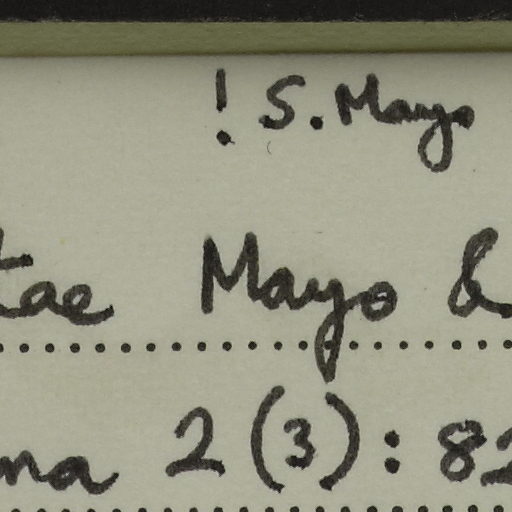 ! S. Mayo
tae Mayo &
na 2(3): 82